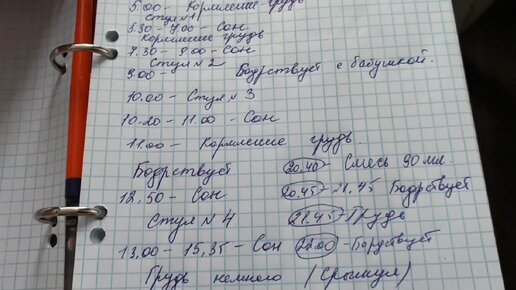 5.00 - Кормление грудь
Стул N 1
5.30 - 7.00 - Сон
Кормление грудь
7.30 - 8.00 - Сон
Стул N 2
9.00 - Бодрствует с бабушкой.
10.00 - Стул N 3
10.20 - 11.00 - Сон
11.00 - Кормление грудь.
Бодрствует
12.50 - Сон
Стул N 4
13.00 - 15,35 - Сон
Грудь немного (Срыгнул)
20.40 - Смесь 90 мл.
20.45 - 21.45 Бодрствует
21.45 - Грудь
22.00 - Бодрствует